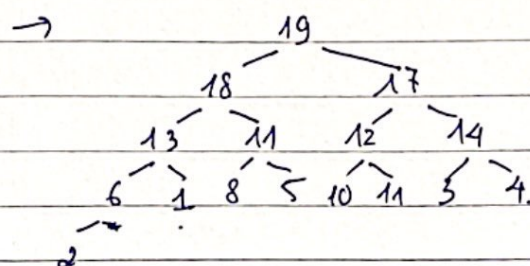 → 19
18 17
13 11 12 14
6 1 8 5 10 11 3 4.
2